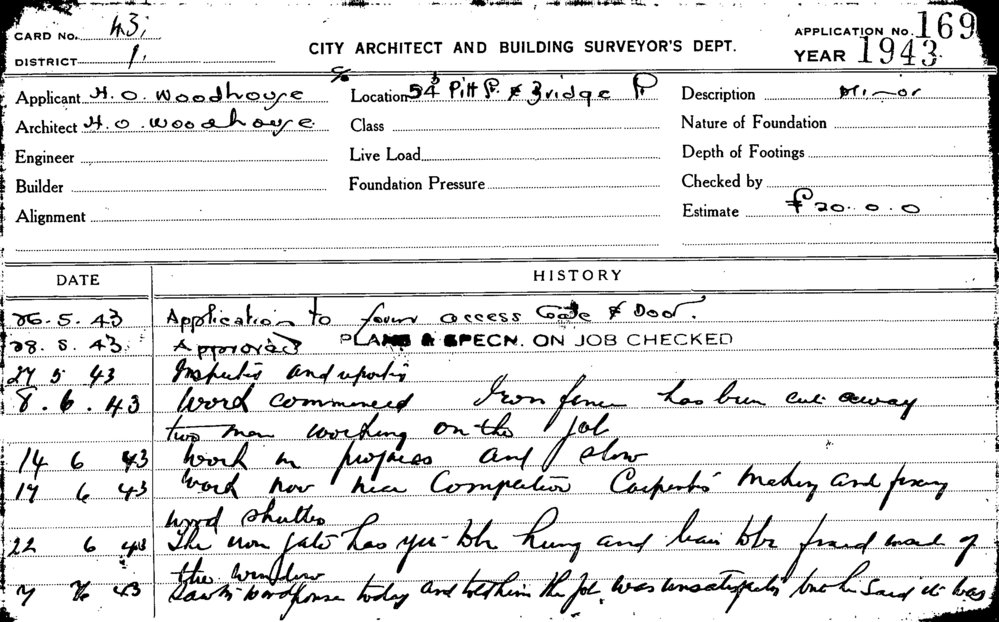 CARD No. 43;
APPLICATION No. 169
DISTRICT 1.
CITY ARCHITECT AND BUILDING SURVEYOR'S DEPT.
YEAR 1943
Applicant H. O. Woodhouse
Location 54 Pitt St & Bridge St
Description Minor
Architect H. O. Woodhouse.
Class
Nature of Foundation
Engineer
Live Load
Depth of Footings
Builder
Foundation Pressure
Checked by
Alignment
Estimate £20.0.0
DATE HISTORY
26.5.43 Application to form access Gate & Door.
28.5.43. Approved PLANS & SPECN. ON JOB CHECKED
27 5 43 and
8.6.43 Work commenced Iron fence has been cut away
two men working on the job
14 6 43 Work in progress and slow
17 6 43 Work now near Completion Making and fixing
wood shutters
22 6 43 The iron gate has yet to be hung and to be made of
the window
43 Saw Mr Woodhouse today and told him the job was unsatisfactory but he said it was